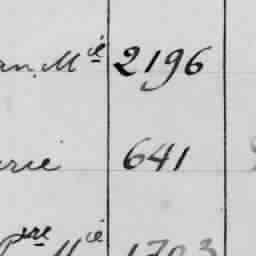 an. Mie 2196
rie 641
Pre Mie 1703